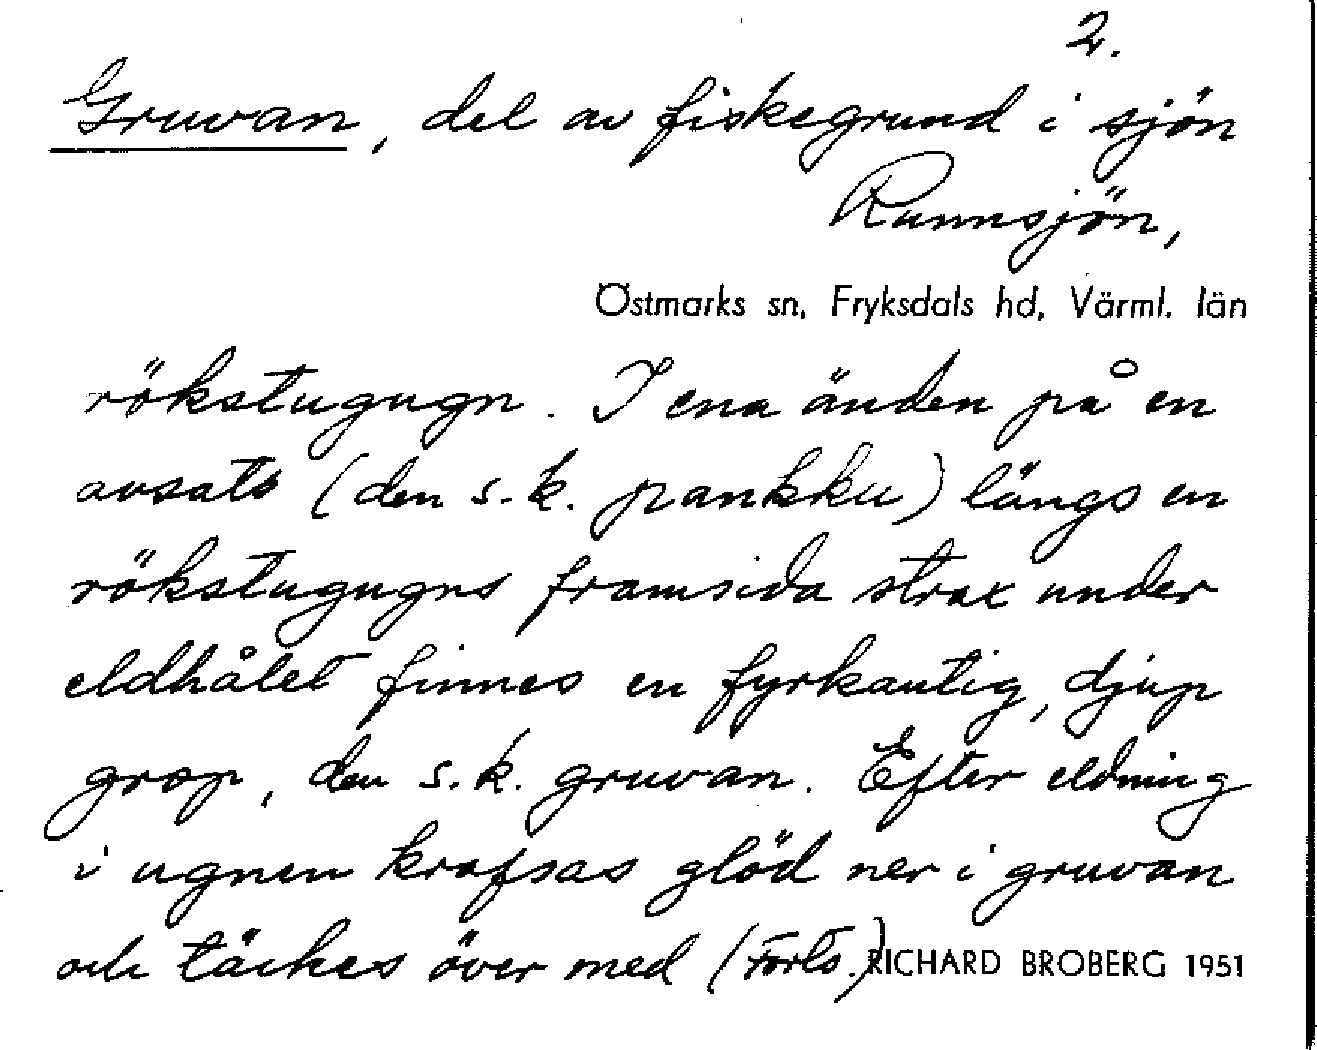 2.
Gruvan, del av fiskegrund i sjön
Runnsjön,
Östmarks sn, Fryksdals hd, Värml. län
rökstugugn. I ena änden på en
avsats (den s.k. pankku) längs en
rökstugugns framsida strax under
eldhålet finnes en fyrkantig, djup
grop, den s.k. gruvan. Efter eldning
i ugnen krafsas glöd ner i gruvan
och täckes över med (Forts.)
RICHARD BROBERG 1951